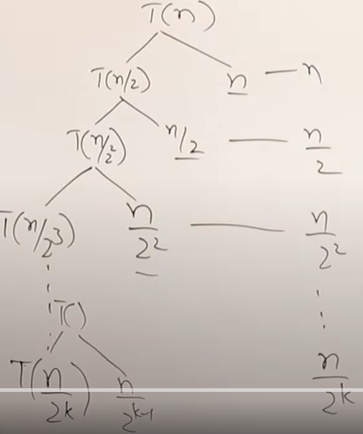 T(n)
T(n/2) n — n
T(n/2²) n/2 — n/2
T(n/2³) n/2² — n/2²
T()
T(n/2k) n/2k-1 n/2k